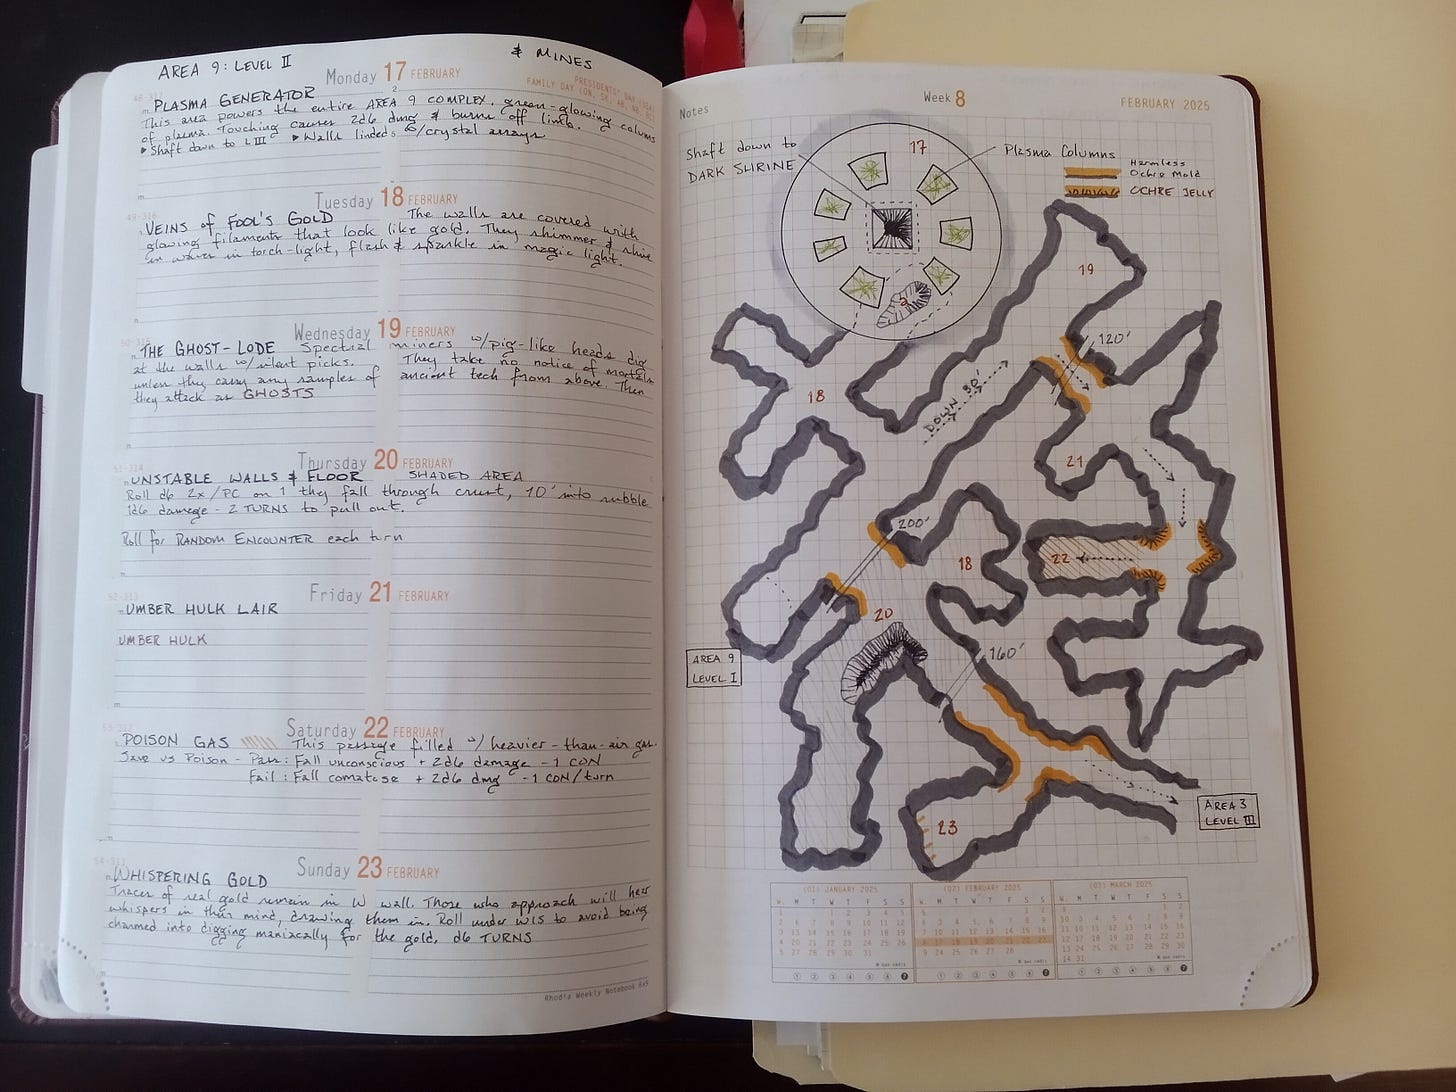 AREA 9: LEVEL II
& MINES
Monday 17 FEBRUARY
PRESIDENTS' DAY (USA)
FAMILY DAY (ON, SK, AB, NB, BC)
PLASMA GENERATOR
This area powers the entire AREA 9 COMPLEX. green-glowing column
of plasma. Touching causes 2d6 dmg & burns off limb.
▸Shaft down to L III ▸Walls linded w/crystal arrays
Tuesday 18 FEBRUARY
49-316
VEINS of FOOL'S GOLD The walls are covered with
glowing filaments that look like gold. They shimmer & shine
in waves in torch-light, flash & sparkle in magic light.
Wednesday 19 FEBRUARY
50-315
THE GHOST-LODE Spectral miners w/pig-like heads dig
at the walls w/silent picks. They take no notice of mortals
unless they carry any samples of ancient tech from above. Then
they attack as GHOSTS
Thursday 20 FEBRUARY
51-314
UNSTABLE WALLS & FLOOR SHADED AREA
Roll d6 2x/PC on 1 they fall through crust, 10' into rubble
1d6 damage - 2 TURNS to pull out.
Roll for RANDOM ENCOUNTER each turn
Friday 21 FEBRUARY
52-313
UMBER HULK LAIR
UMBER HULK
Saturday 22 FEBRUARY
53-312
POISON GAS This passage filled w/ heavier-than-air gas.
Save vs Poison - Pass: Fall unconscious + 2d6 damage -1 CON
Fail: Fall comatose + 2d6 dmg -1 CON/turn
Sunday 23 FEBRUARY
54-311
WHISPERING GOLD
Traces of real gold remain in W wall. Those who approach will hear
whispers in their mind, drawing them in. Roll under WIS to avoid being
charmed into digging maniacally for the gold. d6 TURNS
Rhodia Weekly Notebook 6x9
Notes
Week 8
FEBRUARY 2025
Shaft down to
DARK SHRINE
17
Plasma Columns
Harmless
Ochre Mold
OCHRE JELLY
19
120'
DOWN 30'
18
21
200'
18
22
20
160'
AREA 9
LEVEL I
23
AREA 3
LEVEL III
(01) JANUARY 2025
(02) FEBRUARY 2025
(03) MARCH 2025